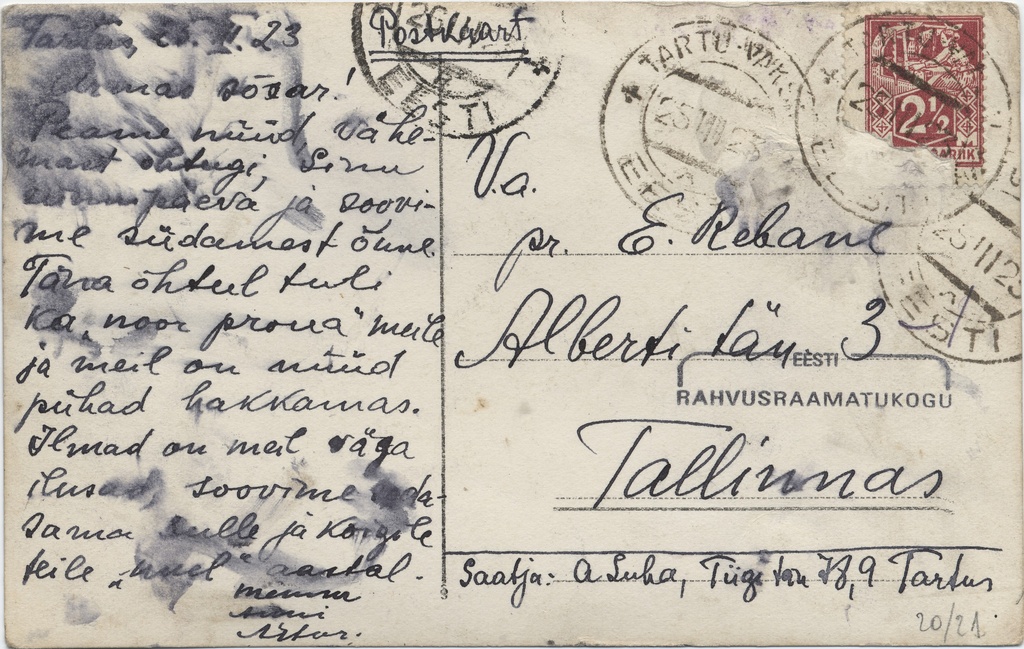 Tartus, 23
Armas sõsar!
Peame nüüd vähe-
mast õhtugi, Sinu
sünnipäeva ja soovi-
me südamest õnne.
Täna õhtul tuli
ka "noor proua" meile
ja meil on nüüd
pühad hakkamas.
Ilmad on meil väga
ilusad, soovime seda-
sama sulle ja kõigile
teile "uuel" aastal.
memm
Postkaart
EESTI
TARTU-VAKS
25 III 23
EESTI
2½
MARK
25 III 23
EESTI
V.a.
pr. E. Rebane
Alberti tän 3
Tallinnas
EESTI
RAHVUSRAAMATUKOGU
Saatja: A Luha, Tiigi tän 78, 9 Tartus
20/21